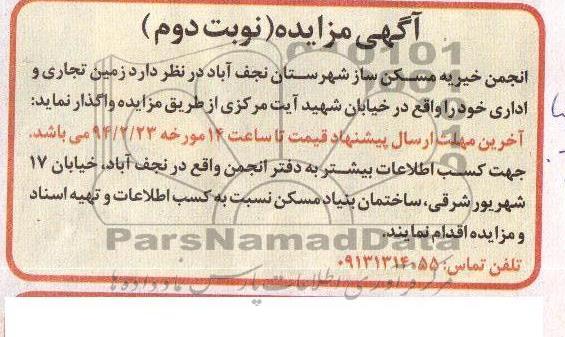 آگهی مزایده(نوبت دوم)
انجمن خیریه مسکن ساز شهرستان نجف آباد در نظر دارد زمین تجاری و
اداری خود را واقع در خیابان شهید آیت مرکزی از طریق مزایده واگذار نماید:
آخرین مهلت ارسال پیشنهاد قیمت تا ساعت ۱۴ مورخه ۹۴/۲/۲۳ می باشد.
جهت کسب اطلاعات بیشتر به دفتر انجمن واقع در نجف آباد، خیابان ۱۷
شهریور شرقی، ساختمان بنیاد مسکن نسبت به کسب اطلاعات و تهیه اسناد
و مزایده اقدام نمایند.
ParsNamadData
تلفن تماس: ۰۹۱۳۱۳۱۴۰۵۵
مرکز فرآوری اطلاعات پارس نماد داده ها